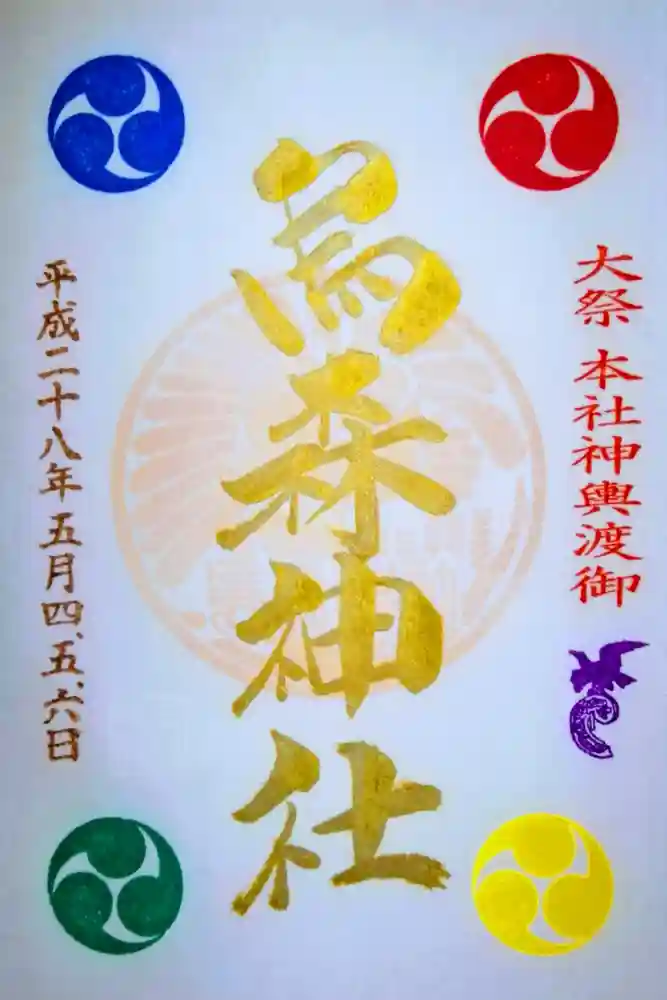 大祭 本社神輿渡御
烏森神社
平成二十八年 五月四、五、六日